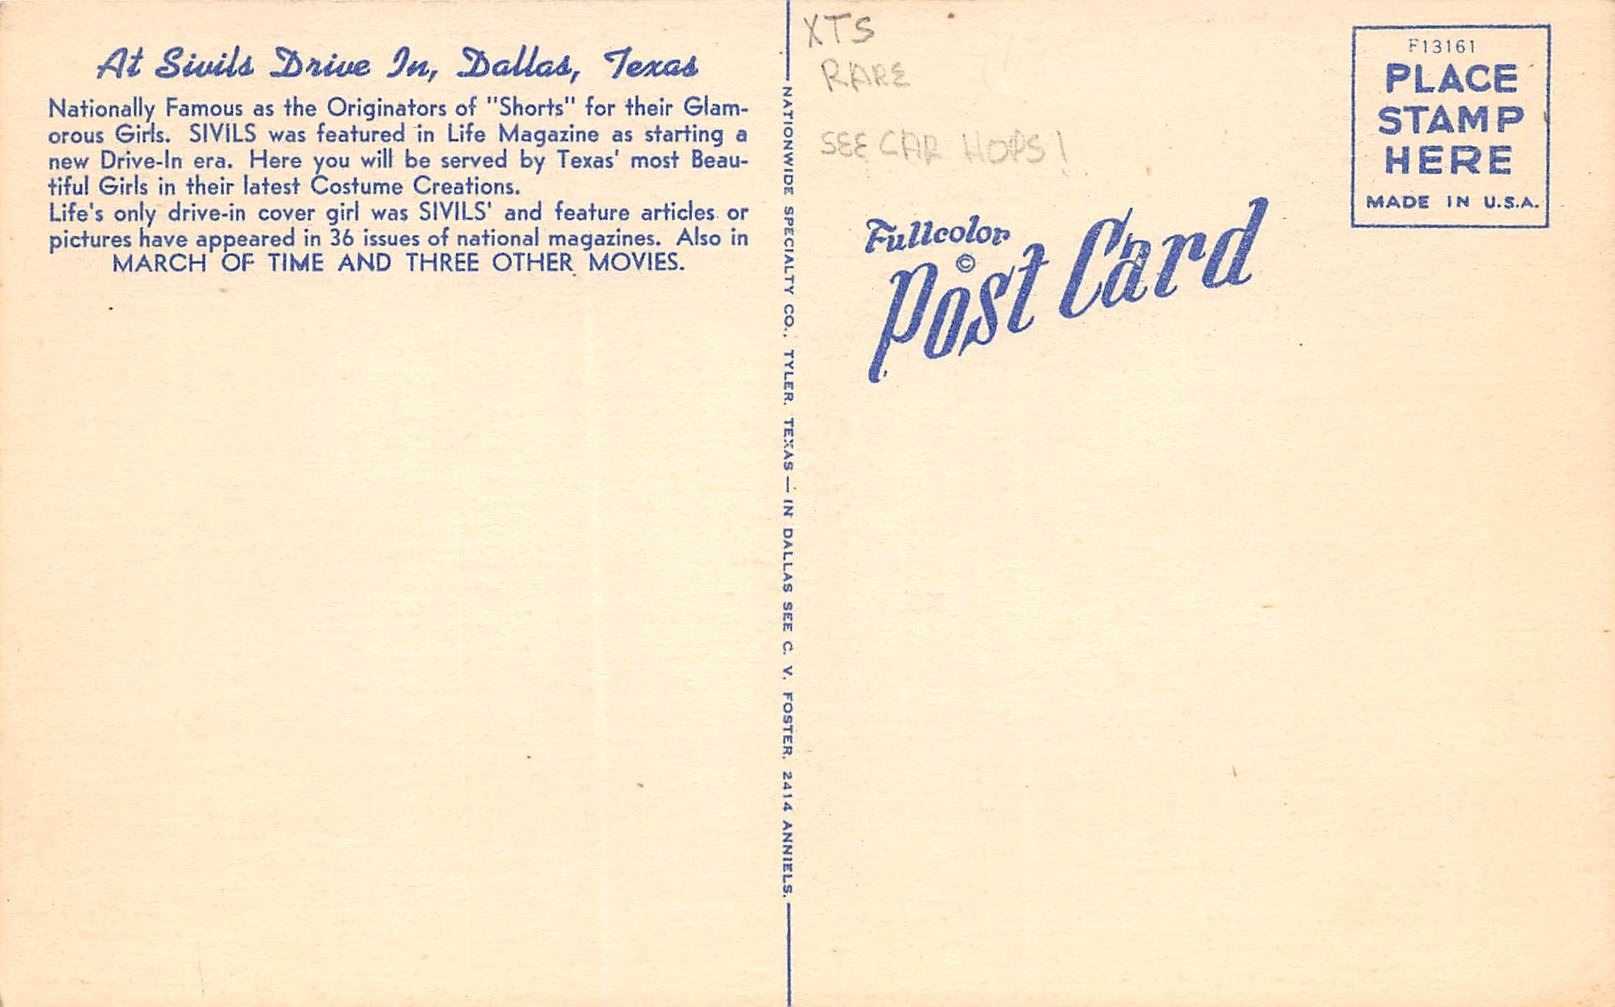 At Sivils Drive In, Dallas, Texas
Nationally Famous as the Originators of "Shorts" for their Glam-
orous Girls. SIVILS was featured in Life Magazine as starting a
new Drive-In era. Here you will be served by Texas' most Beau-
tiful Girls in their latest Costume Creations.
Life's only drive-in cover girl was SIVILS' and feature articles or
pictures have appeared in 36 issues of national magazines. Also in
MARCH OF TIME AND THREE OTHER MOVIES.
NATIONWIDE SPECIALTY CO., TYLER, TEXAS — IN DALLAS SEE C. V. FOSTER, 2414 ANNIELS.
XTS
RARE
SEE CAR HOPS!
Fullcolor
©
Post Card
F13161
PLACE
STAMP
HERE
MADE IN U.S.A.